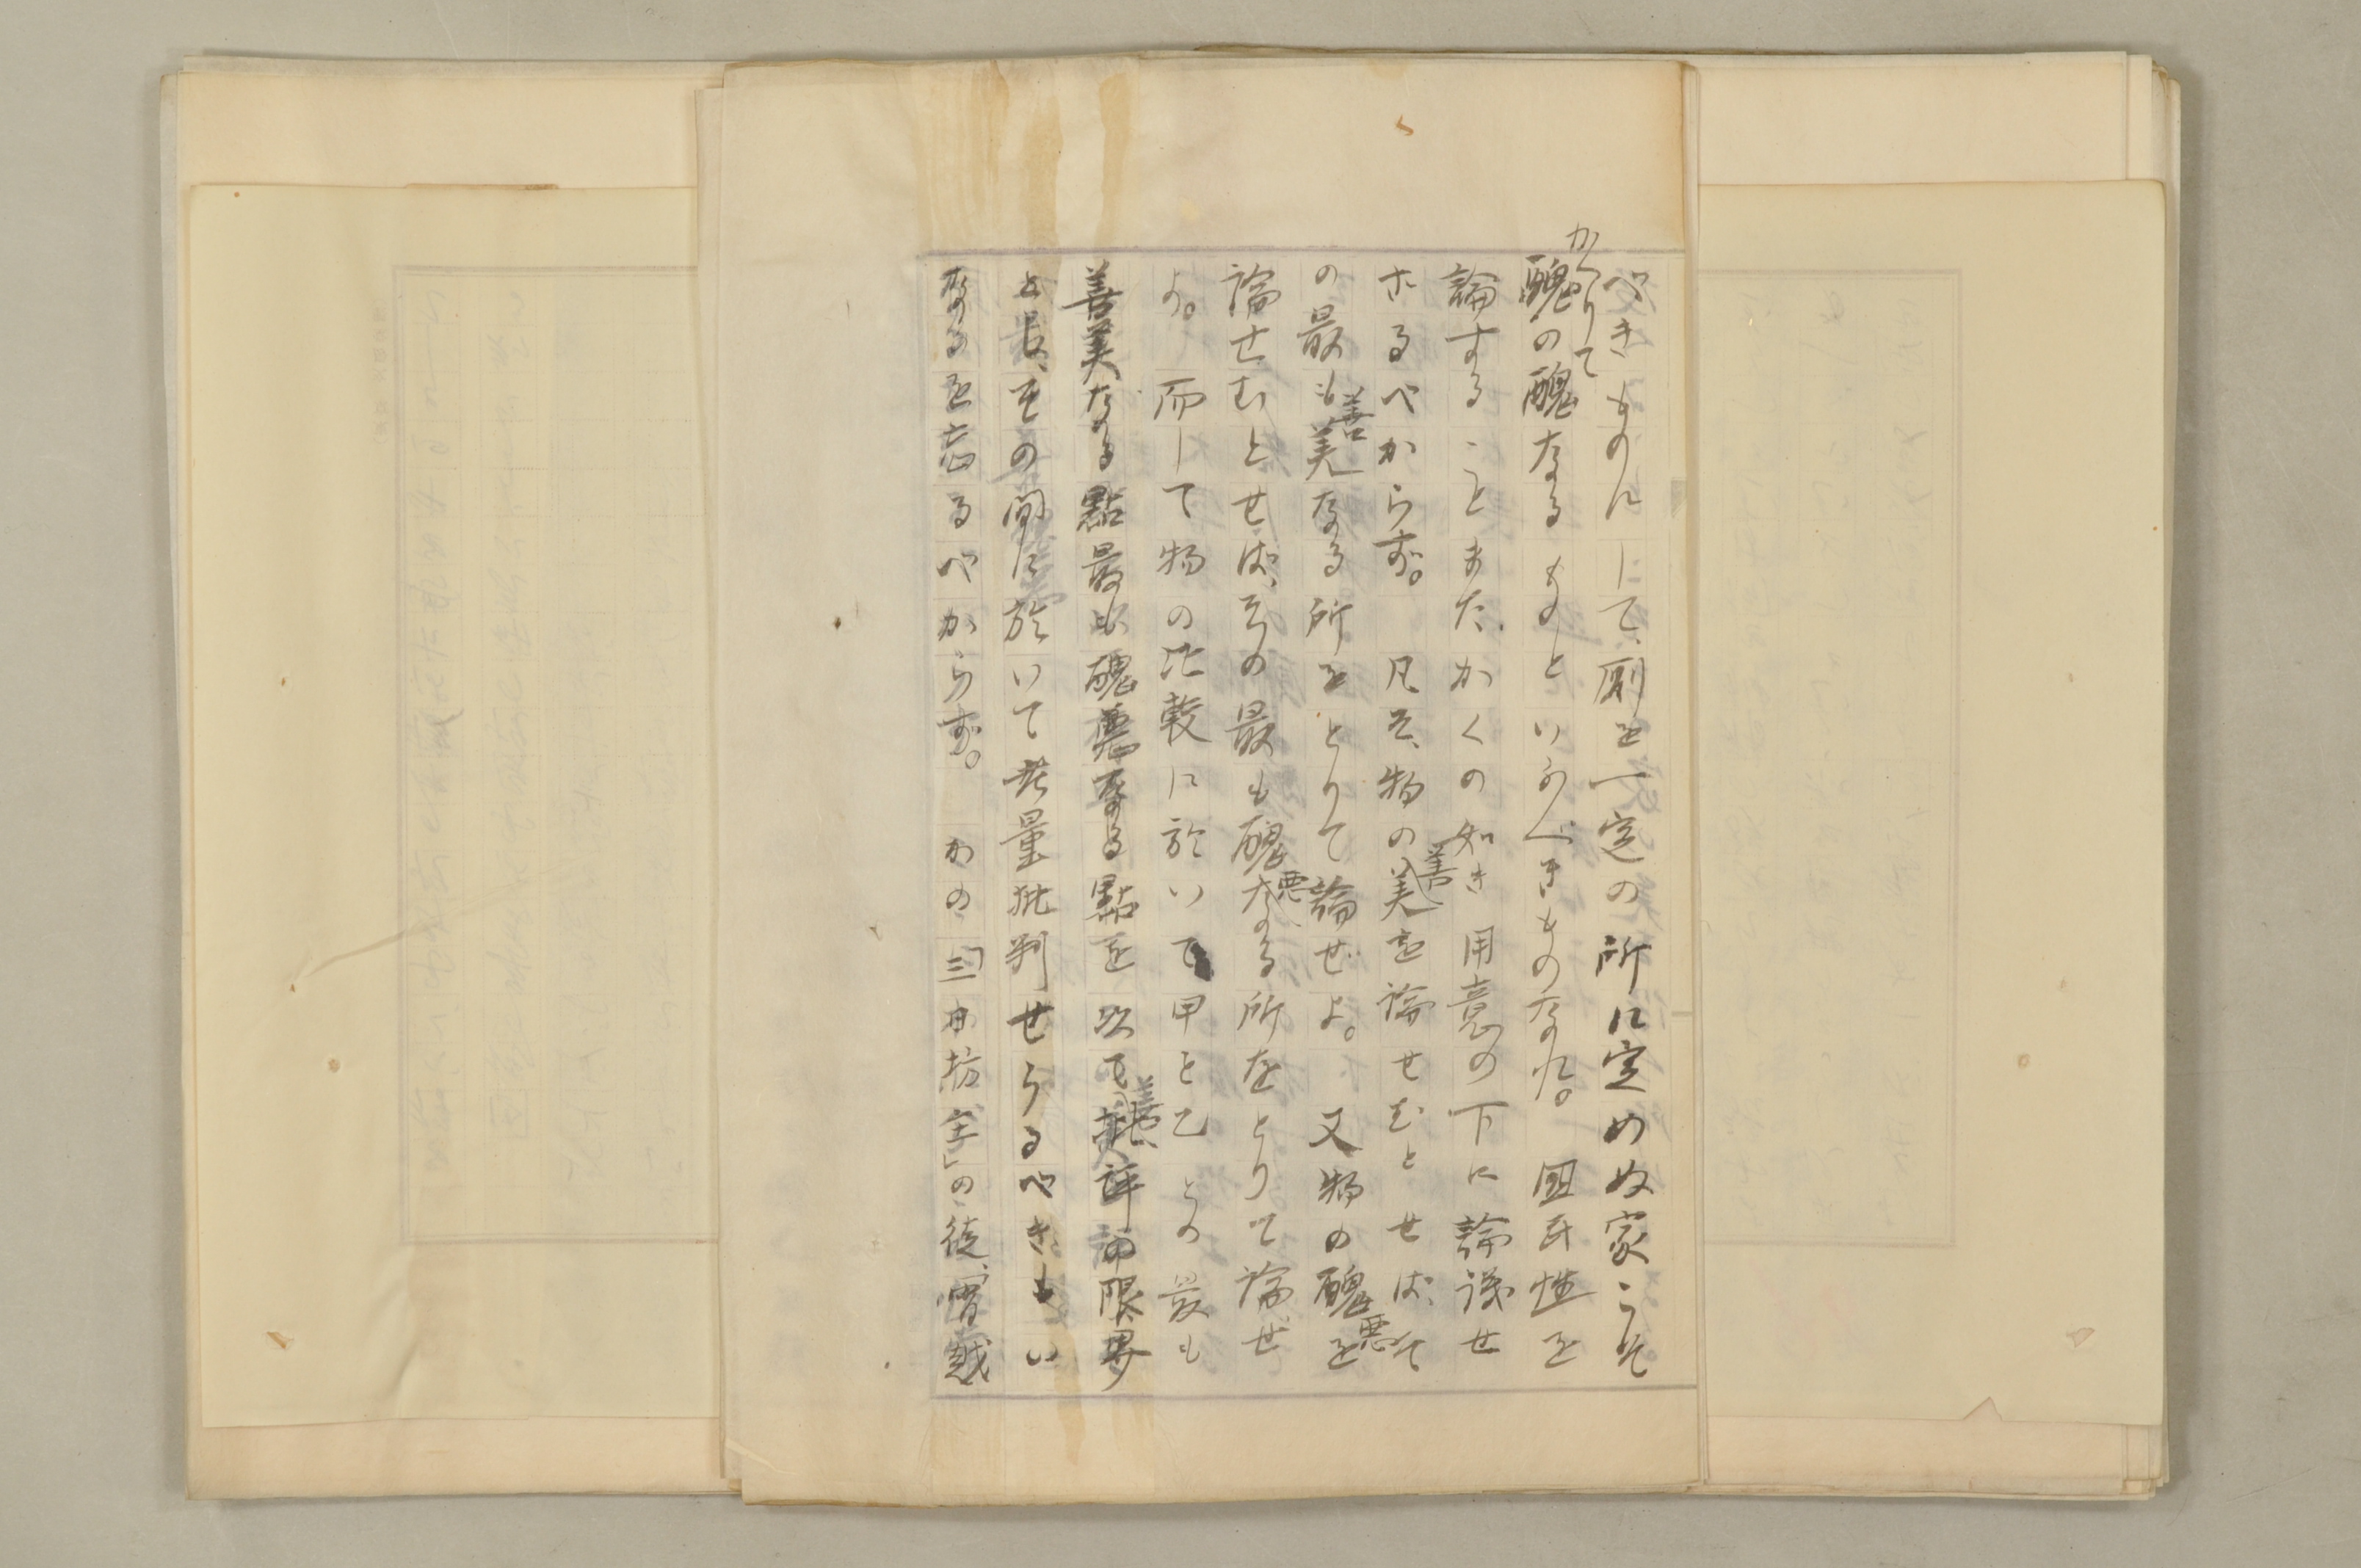 べきものにして、厠を一定の所に定めぬ家こそ
かへりて
醜の醜なるものといふべきものなれ。 国民性を
論することまたかくの如き用意の下に論議せ
さるべからず。 凡そ、物の善美を論せむとせば、そ
の最も善美なる所をとりて論ぜよ。 又物の醜悪を
論せむとせば、その最も醜悪なる所をとりて論ぜ
よ。 而して物の比較に於いて甲と乙との最も
善美なる點最も醜悪なる點を以て善悪評の限界
と、その間に於いて考量批判せらるべきもい
なるを忘るべからず。 かの「三田坊主」の徒、